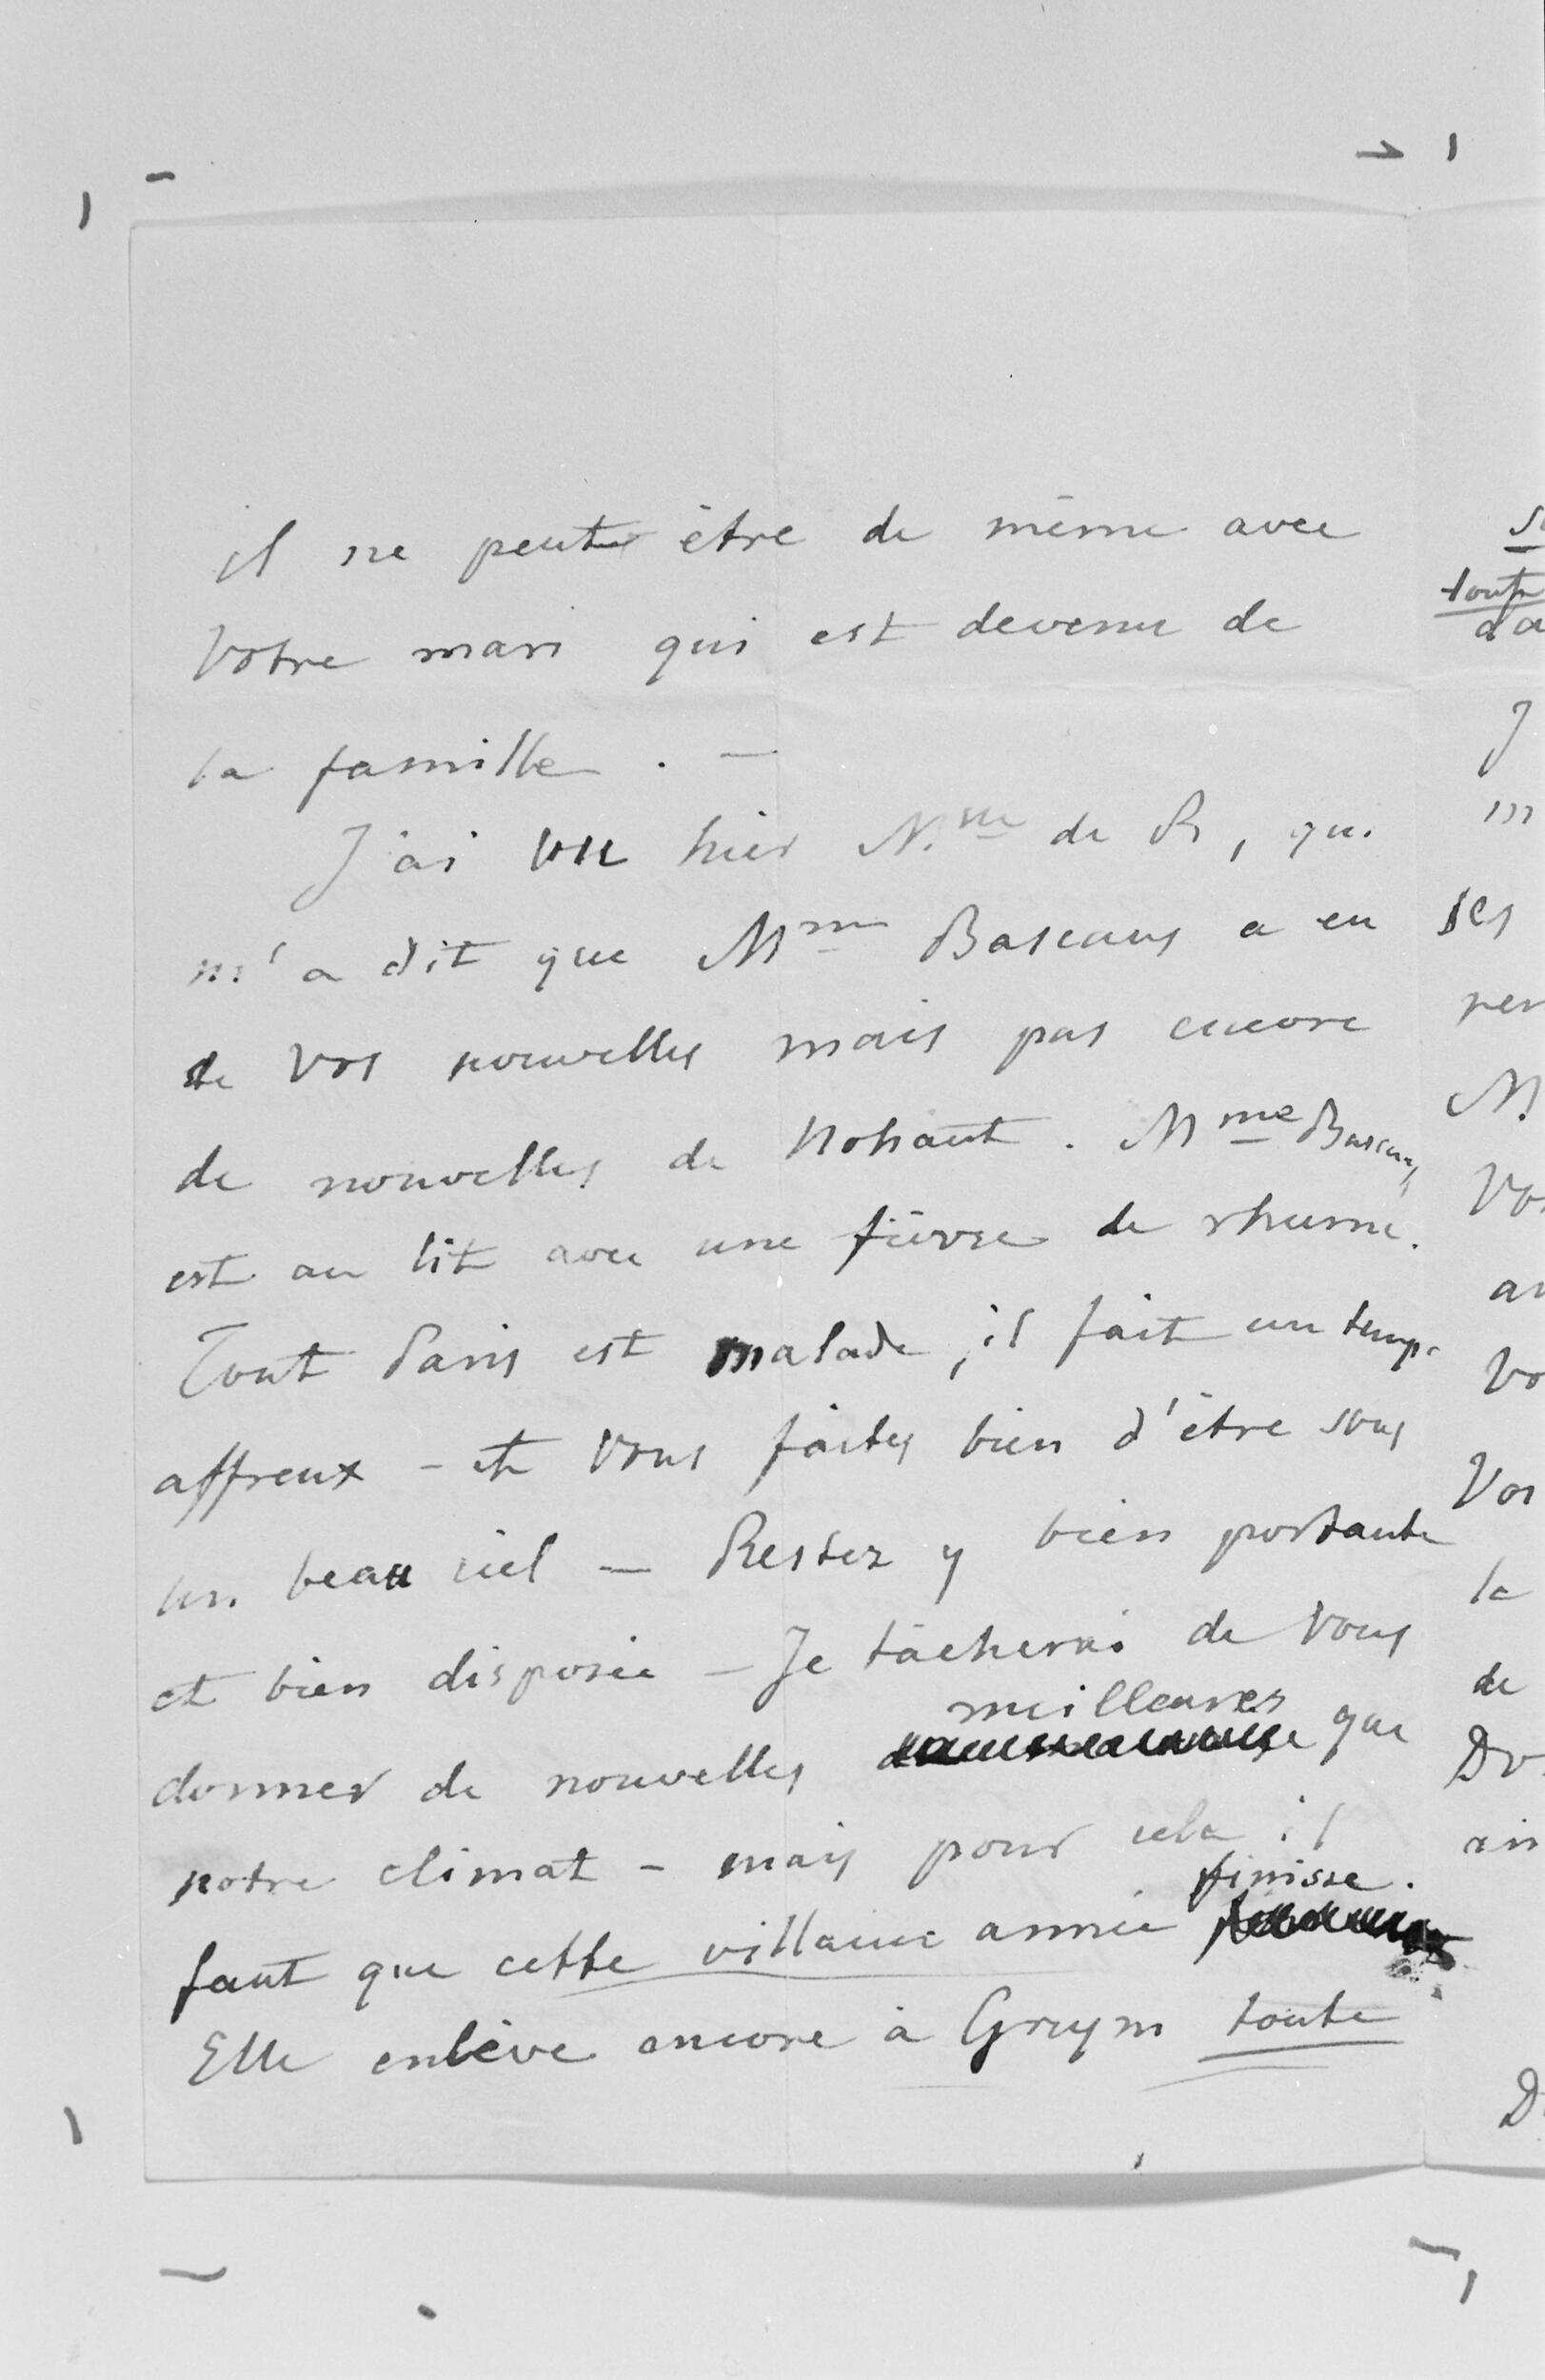 il ne peut être de même avec
votre mari qui est devenu de
la famille . —
J'ai vu hier Mme de R, qui
m'a dit que Mme Bascans a eu
de vos nouvelles mais pas encore
de nouvelles de Nohant . Mme Bascans
est au lit avec une fièvre de rhume.
Tout Paris est malade, il fait un temps
affreux – et vous faites bien d'être sous
un beau ciel — Restez y bien portante
et bien disposée – Je tâcherai de vous
meilleures
donner de nouvelles que
notre climat – mais pour cela il
finisse.
faut que cette villaine année
Elle enlève encore à Grzym toute